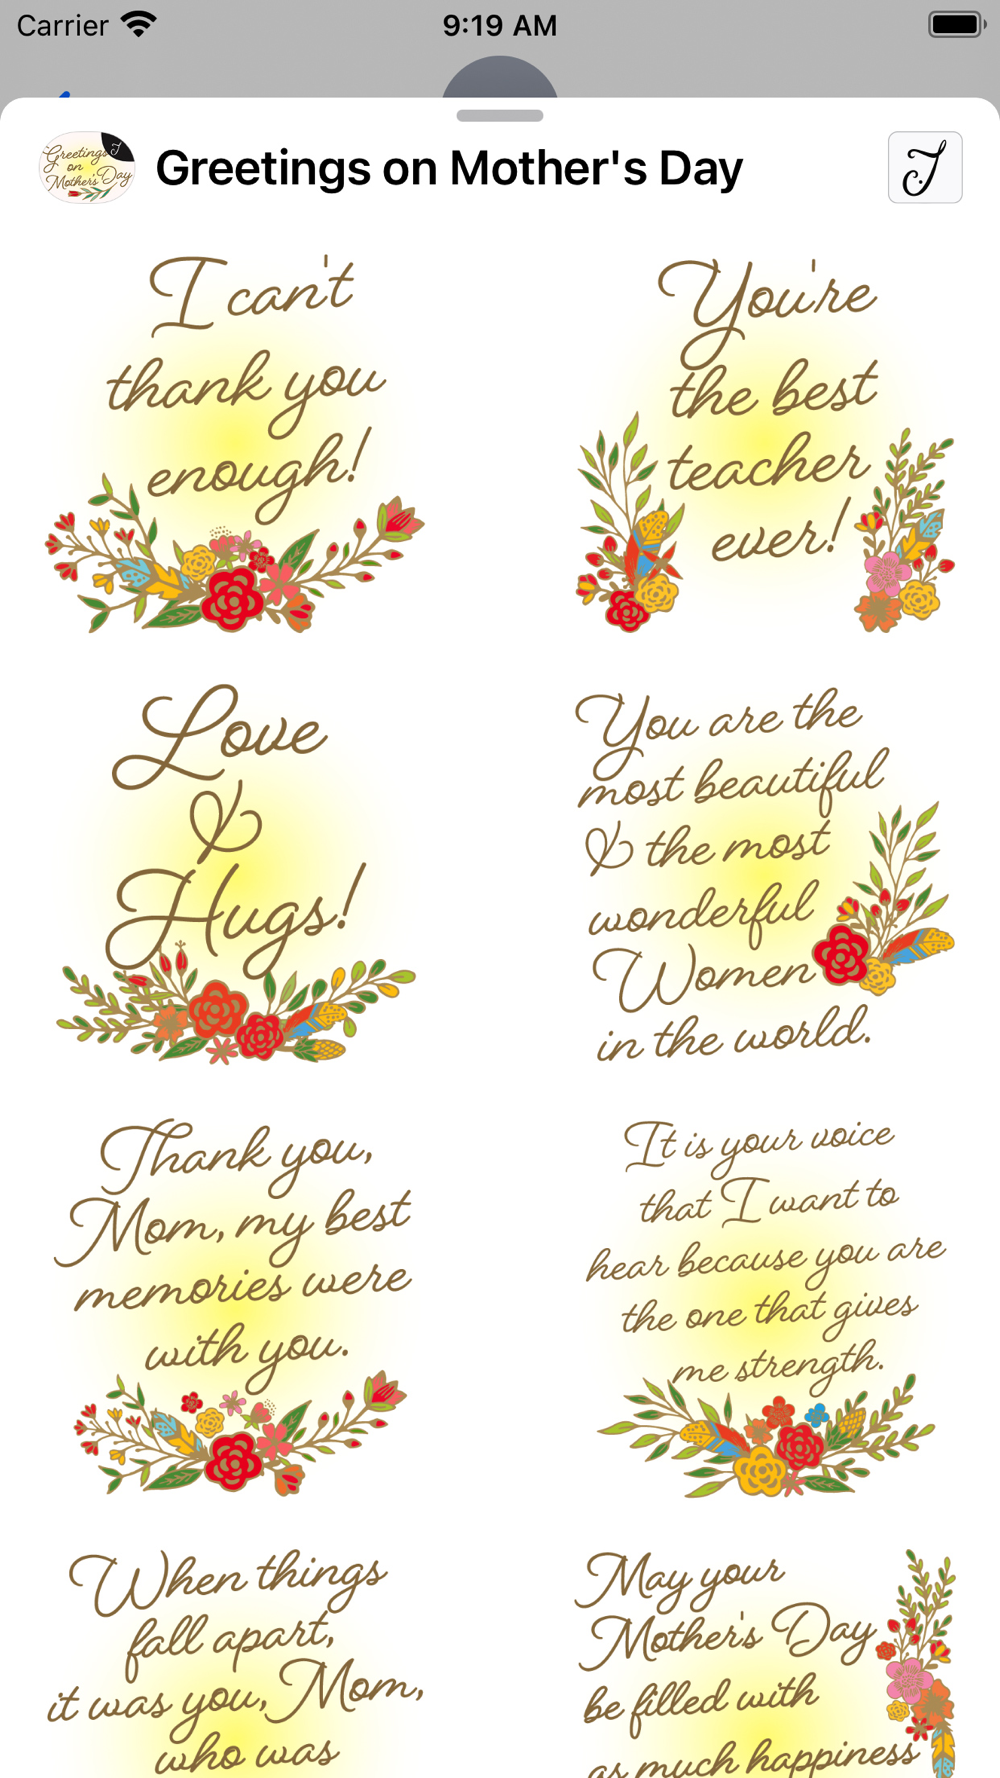 Carrier 9:19 AM
Greetings on Mother's Day
Greetings
on
Mother's Day
J
J
I can't
thank you
enough!
You're
the best
teacher
ever!
Love
&
Hugs!
You are the
most beautiful
& the most
wonderful
Women
in the world.
Thank you,
Mom, my best
memories were
with you.
It is your voice
that I want to
hear because you are
the one that gives
me strength.
When things
fall apart,
it was you, Mom,
who was
May your
Mother's Day
be filled with
as much happiness